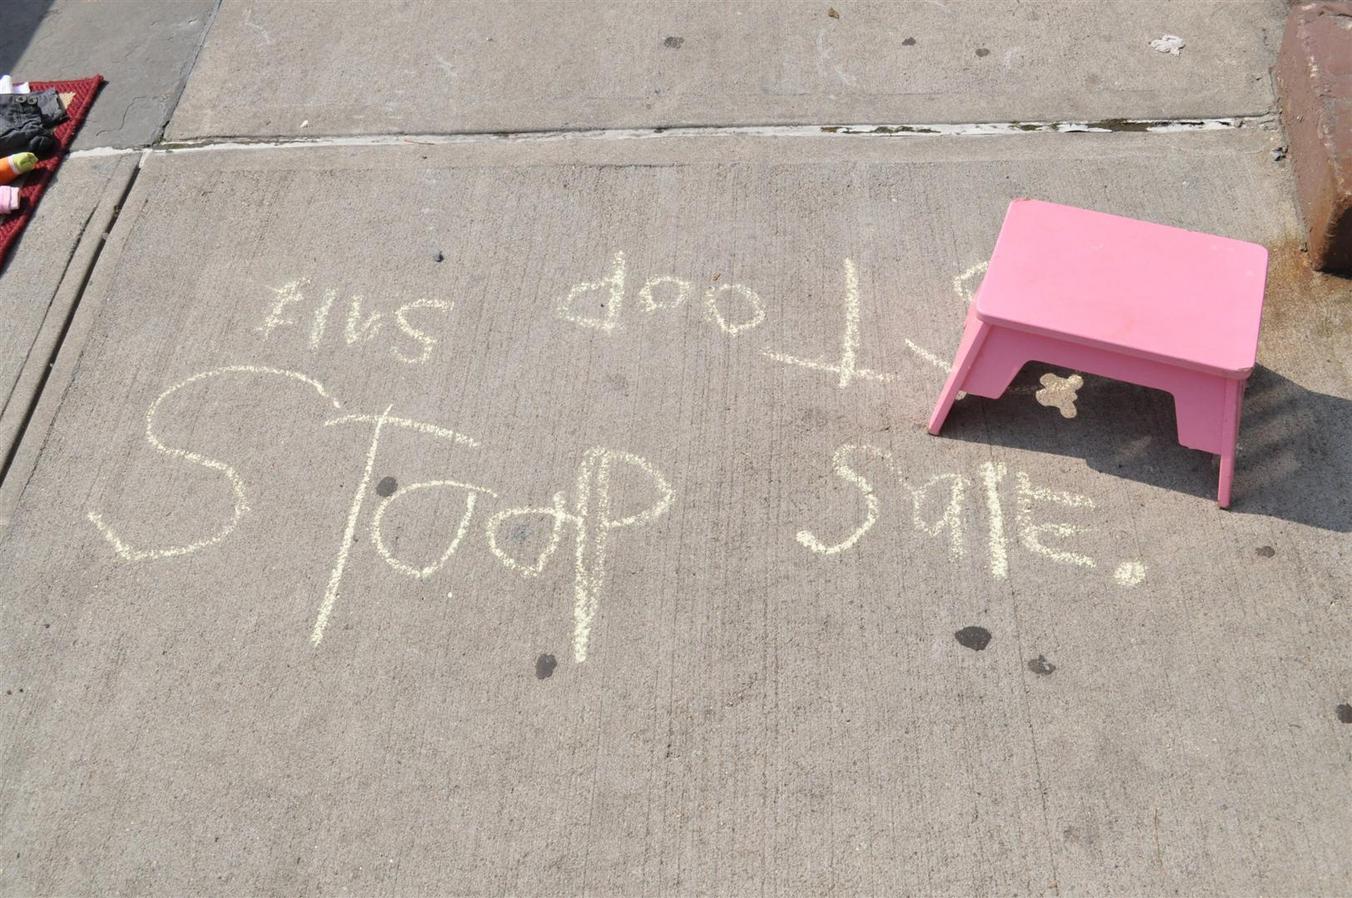 SToop Sale.
SToop Sale